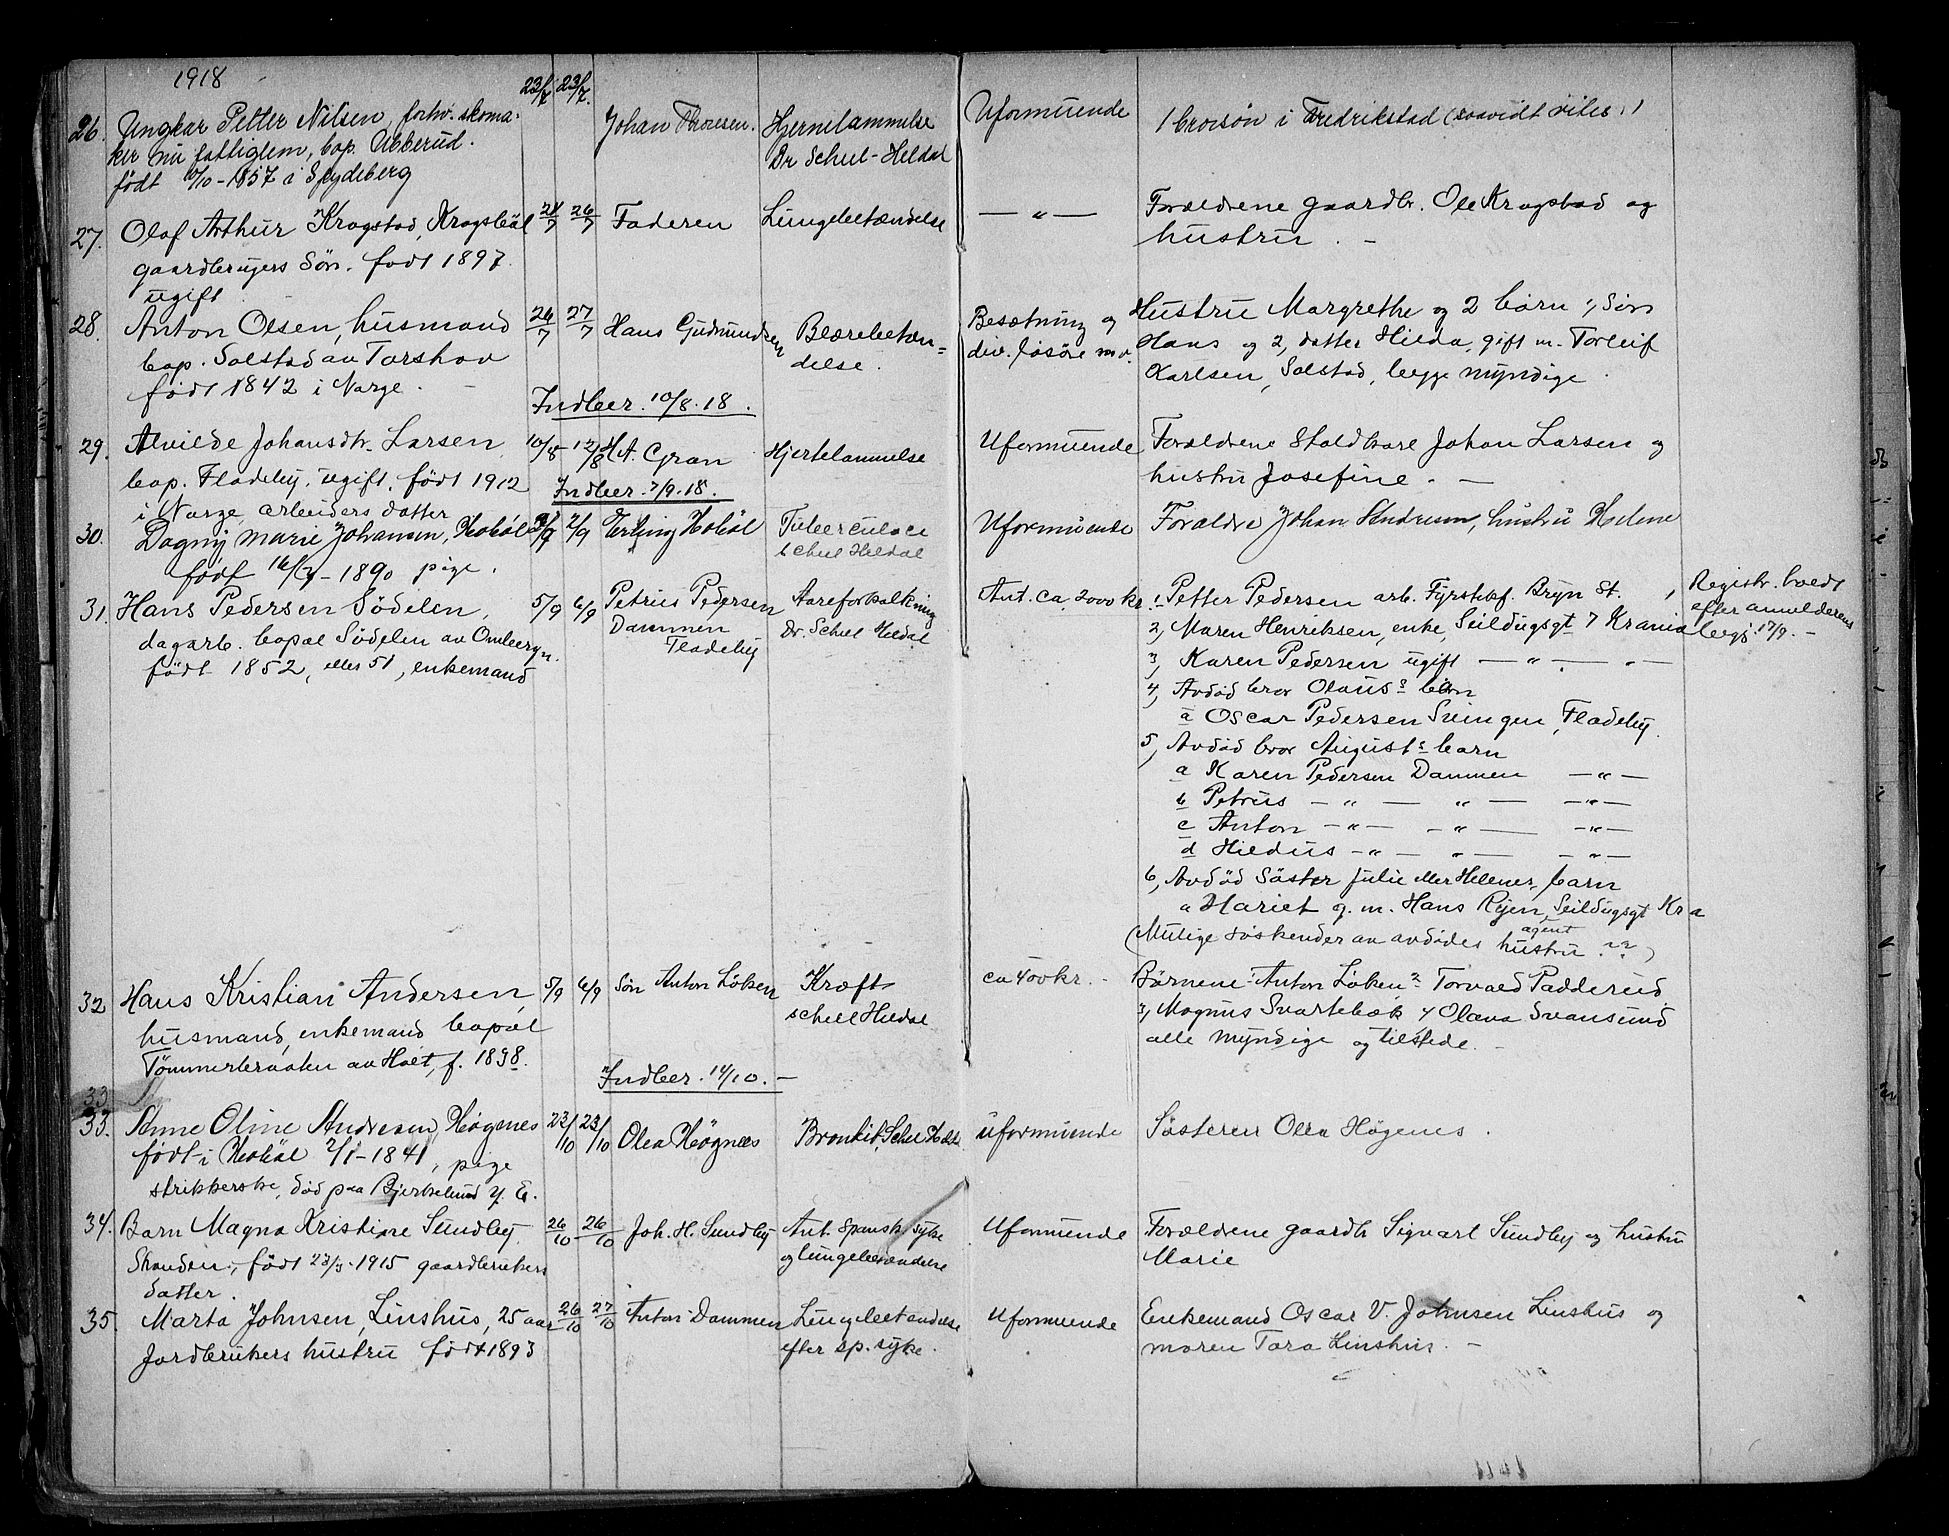 1918
26. Ungkar Petter Nilsen, forhv. skoma- 23/7 23/7. Johan Thoresen. Hjernelammelse Uformuende 1 brorsön i Fredrikstad (saavidt vites.)
ker nu fattiglem, bop. Ubberud. Dr Scheel-Heldal
født 10-1857 i Spydeberg
27. Olaf Arthur Kragstad, Kragsbøl 21/7 26/7 Faderen Lungebetændelse — " — Forældrene gaardbr. Ole Kragstad og
gaardbrugers Søn. født 1897. hustru. –
ugift
28. Anton Olsen, husmand 24/7 27/7 Hans Gudmundsen Blærebetæn- Besætning og Hustru Margrethe og 2 börn 1, Sön
bop. Solstad av Torshov delse. div. løsöre m.v. Hans og 2, datter Hilda, gift m. Torleif
født 1842 i Norge. – Karlsen, Solstad, begge myndige.
Indber. 10/8-18.
29. Alvilde Johansdtr. Larsen 10/8 - 12/8 H.A. Gran Hjertelammelse Uformuende Forældrene Staldkare Johan Larsen og
bop. Fladeby, ugift, født 1912 hustru Josefine. —
i Norge, arbeiders datter
Indber. 7/9-18.
30. Dagny Marie Johansen, Hobøl 2/9 Erling Hobøl Tuberculose Uformuende Forældre Johan Andresen, hustru Helene
født 16/ - 1890 pige. Scheel Heldal
31. Hans Pedersen Södelen, 5/9 6/9 Petrus Pedersen Aareforkalkning Ant. ca. 2000 kr. 1, Petter Pedersen arb. Fyrstikf. Bryn St. Registr. holdt
dagarb. bopæl Södelen av Dammen Dr. Scheel Heldal 2, Maren Henriksen, enke, Seildugsgt 7 Krania efter anmelderens
født 1852, eller 51, enkemand Fladeby begj. 17/9. –
3, Karen Pedersen ugift — " — " —
4, Avdöd bror Olaus's barn
a Oscar Pedersen Svingen, Fladeby.
5, Avdöd bror August's barn
a Karen Pedersen Dammen — " —
b Petrus — " — " — — " —
c Anton — " — — " — — " —
d Hildus — " — " — — " —
6, Avdöd Söster Julie eller Helenes barn
a Hariet g. m. Hans Ryen, Seildugsgt Kra
agent
(Mulige söskender av avdödes hustru ??)
32. Hans Kristian Andersen, 5/9 6/9 Sön Anton Löken Kræft ca 400 kr. – Börnene 1 Anton Löken 2 Torvald Padderud
husmand, enkemand bopæl Scheel Heldal 3, Magnus Svartebæk 4 Olava Svansund
Tømmerbraaten av Holt, f. 1838. alle myndige og tilstede. –
Indber. 14/10. –
33
33. Anne Oline Andresen, Høgnes 23/10 23/10 Olea Høgnes Bronkit, Scheel Held. uformuende Søsteren Olea Høgenes.
født i Hobøl 2/1 - 1841, pige
strikkerske, død paa Bjerkelund y. E.
34. Barn Magna Kristiane Sundby 26/10 26/10 Joh. H. Sundby Ant. Spansk syke Uformuende Forældrene gaardbr Sigvart Sundby og hustru
født 23/3-1915 gaardbrukers og lungebetændelse Marie
datter.
35. Marta Johnsen, Linshus, 25 aar 26/10 27/10 Anton Dammen Lungebetændelse Uformuende Enkemand Oscar V. Johnsen Linshus og
Jordbrukers hustru født 1893 efter sp. syke. moren Tora Linshus. –